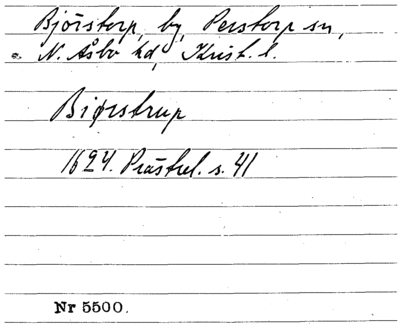 Björstorp, by, Perstorp sn,
N. Åsbo hd, Krist. l.
Biørstrup
1624. Prästrel. s. 41
Nr 5500.